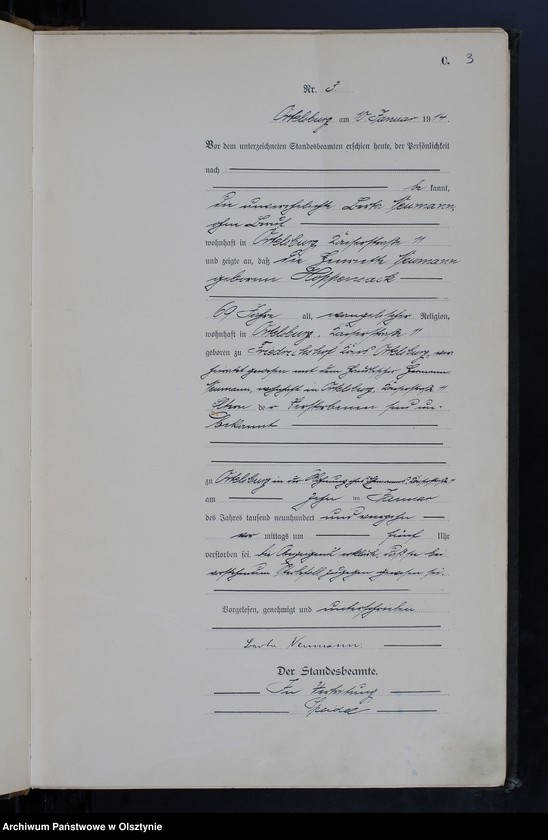 C. 3
Nr. 3
Ortelsburg am 10 Januar 1914.
Vor dem unterzeichneten Standesbeamten erschien heute, der Persönlichkeit
nach
be kannt,
die unverehelichte Berta Neumann,
ohne Beruf
wohnhaft in Ortelsburg, Kaiserstraße 11
und zeigte an, daß die Henriette Neumann
geborene Hoppensack
69 Jahre alt, evangelischer Religion,
wohnhaft in Ortelsburg, Kaiserstraße 11
geboren zu Friedrichshof Kreis Ortelsburg, ver
heiratet gewesen mit dem Hermann
Neumann, wohnhaft in Ortelsburg, Kaiserstraße 11
Eltern der Verstorbenen sind un-
bekannt
zu Ortelsburg in der Wohnung des Ehemanns, Kaiserstraße 11
am zehn im Januar
des Jahres tausend neunhundert und vierzehn
vor mittags um fünf Uhr
verstorben sei. Die Anzeigende erklärt, daß sie bei
vorstehendem Sterbefall zugegen gewesen sei.
Vorgelesen, genehmigt und unterschrieben
Berta Neumann.
Der Standesbeamte.
In Vertretung
Archiwum Państwowe w Olsztynie